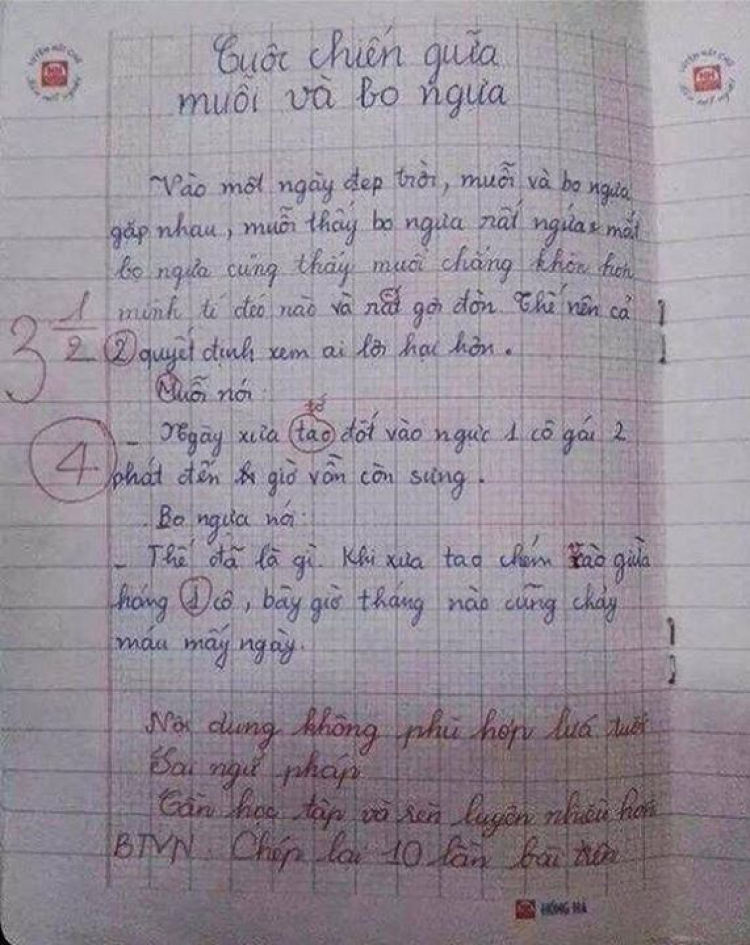 Cuộc chiến giữa
muỗi và bọ ngựa
Vào một ngày đẹp trời, muỗi và bọ ngựa
gặp nhau, muỗi thấy bọ ngựa rất ngứa mắt
bọ ngựa cũng thấy muỗi chẳng khôn hơn
mình tí đéo nào và rất gợi đòn. Thế nên cả
3 1/2
2 quyết định xem ai lợi hại hơn.
Muỗi nói:
tớ
- Ngày xưa tao đốt vào ngực 1 cô gái 2
4
phát đến giờ vẫn còn sưng.
Bọ ngựa nói:
- Thế đã là gì. Khi xưa tao chém vào giữa
háng 1 cô, bây giờ tháng nào cũng chảy
máu mấy ngày.
Nội dung không phù hợp lứa tuổi
Sai ngữ pháp
Cần học tập và rèn luyện nhiều hơn
BTVN: Chép lại 10 lần bài trên
HỒNG HÀ